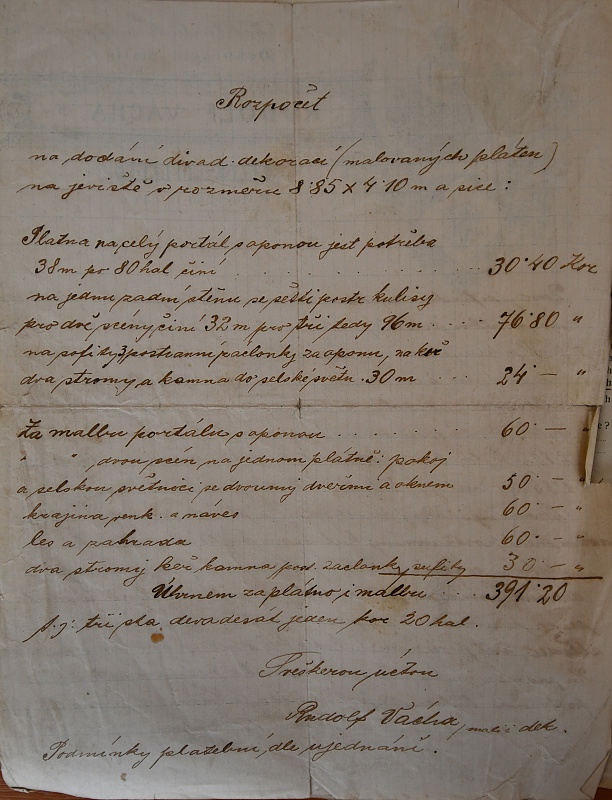 Rozpočet
na dodání divad. dekorací (malovaných pláten)
na jeviště v rozměru 8·85 x 4·10 m a sice:
Platna na celý portál s aponou jest potřeba
38 m po 80 hal činí . . . . . . 30·40 Kor
na jednu zadní stěnu se šesti postr kulisy
pro dvě scény činí 32 m pro tři tedy 96 m . . . . 76·80 "
na sofity 3 postranní zaclonky za aponu, na keř
dva stromy a kamna do selské světn. 30 m . . . 24 — "
Za malbu portálu s aponou . . . . . . . 60·— "
" " dvou scén na jednom plátně: pokoj
a selskou světnici se dvoumi dveřmi a oknem 50·— "
krajina venk. a náves 60·— "
les a zahrada 60·— "
dva stromy keř kamna pod. zaclonky, sufity 30·— "
Úhrnem za plátno i malbu . . . 391·20
t. j: tři sta devadesát jeden kor 20 hal.
Veškerou úctou
Rudolf Vácha, malíř dek.
Podmínky platební, dle ujednání.